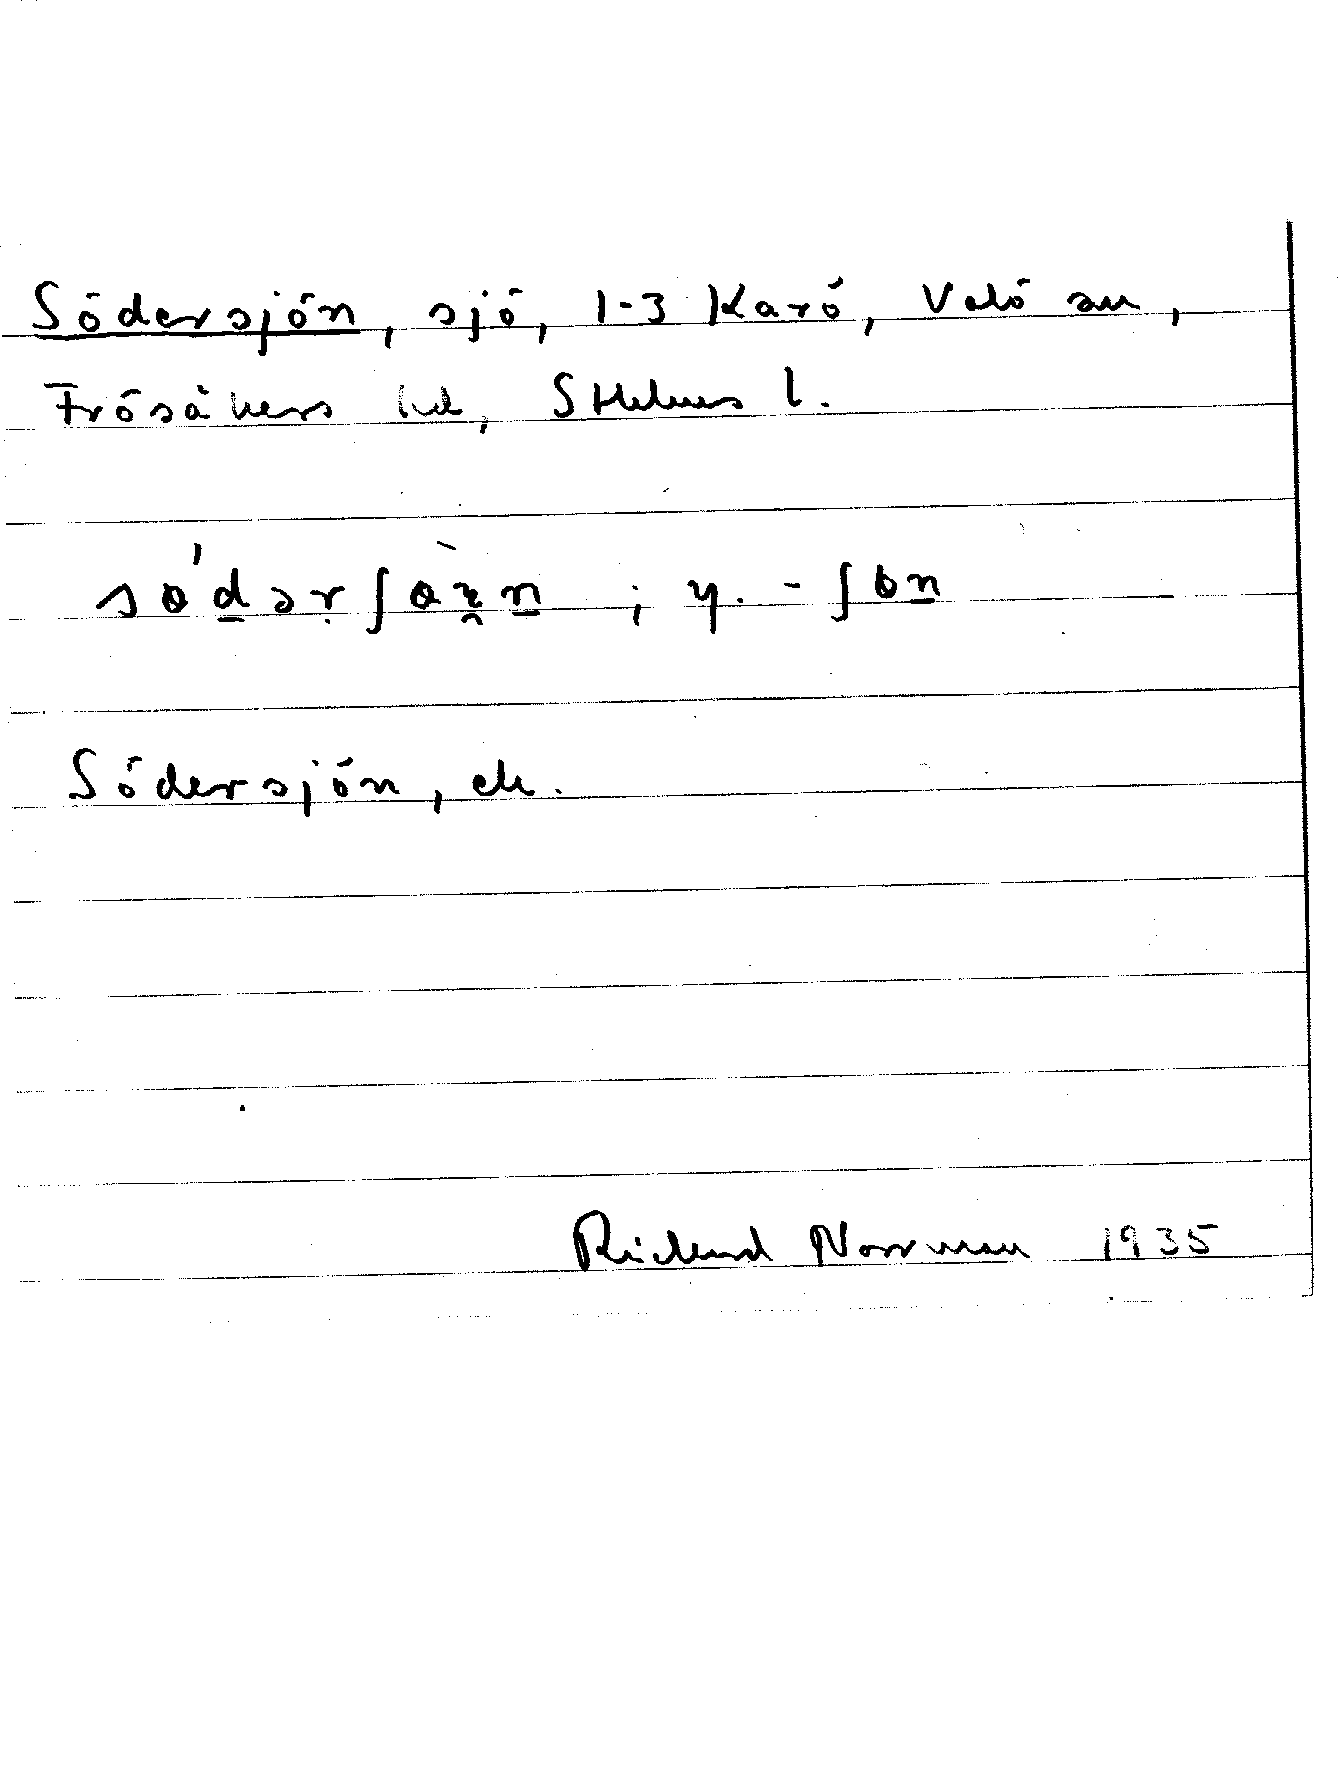 Södersjön, sjö, 1-3 Karö, Valö sn,
Frösåkers hd, Sthlms l.
sɵ́dərʃɵ̀ɀn ; y. -ʃɵn
Södersjön, ek.
Rickard Norrman 1935